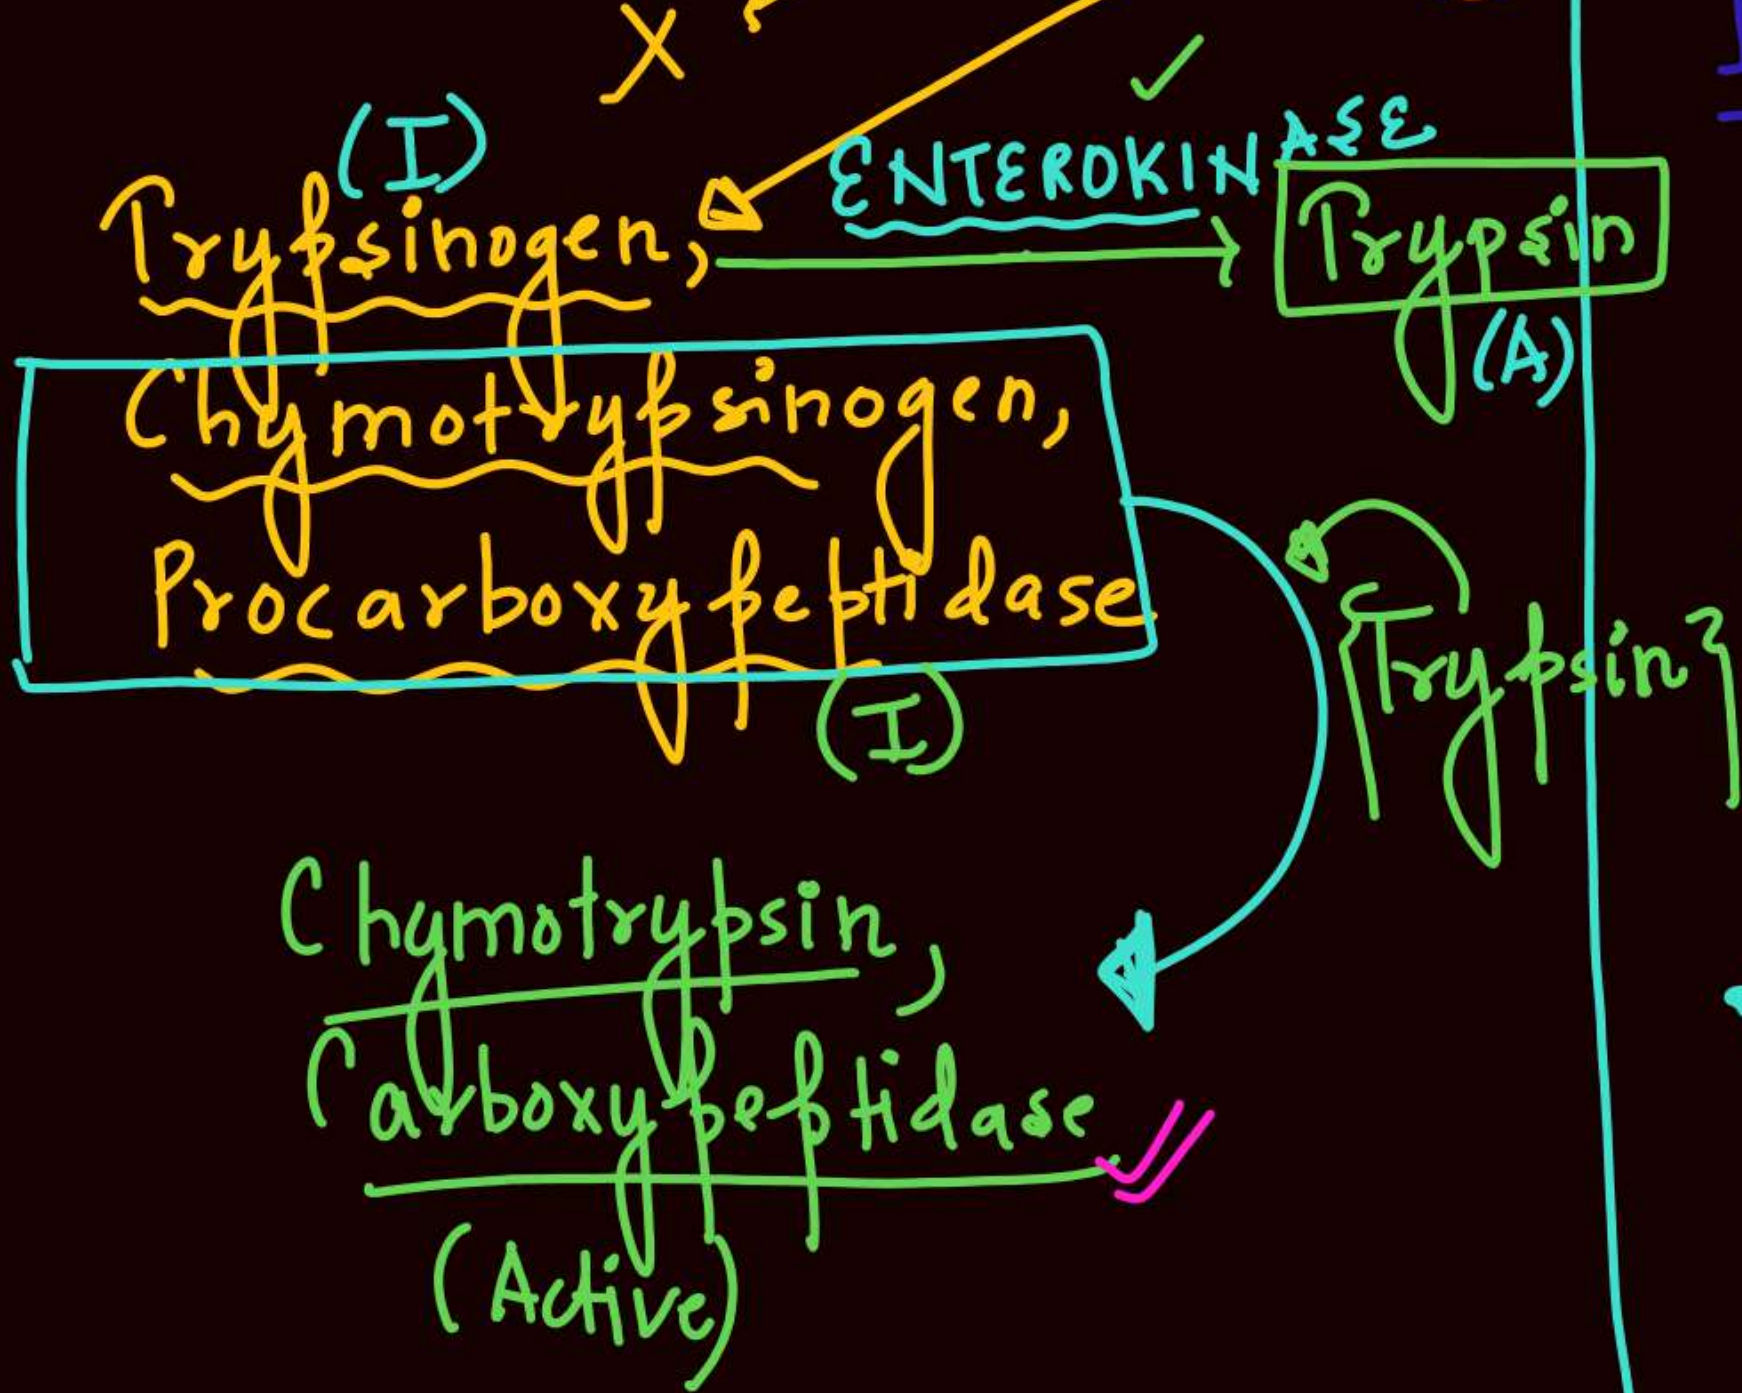 X
(I)
ENTEROKINASE
Trypsinogen, Trypsin
(A)
Chymotrypsinogen,
Procarboxypeptidase
{Trypsin}
(I)
Chymotrypsin,
Carboxypeptidase
(Active)